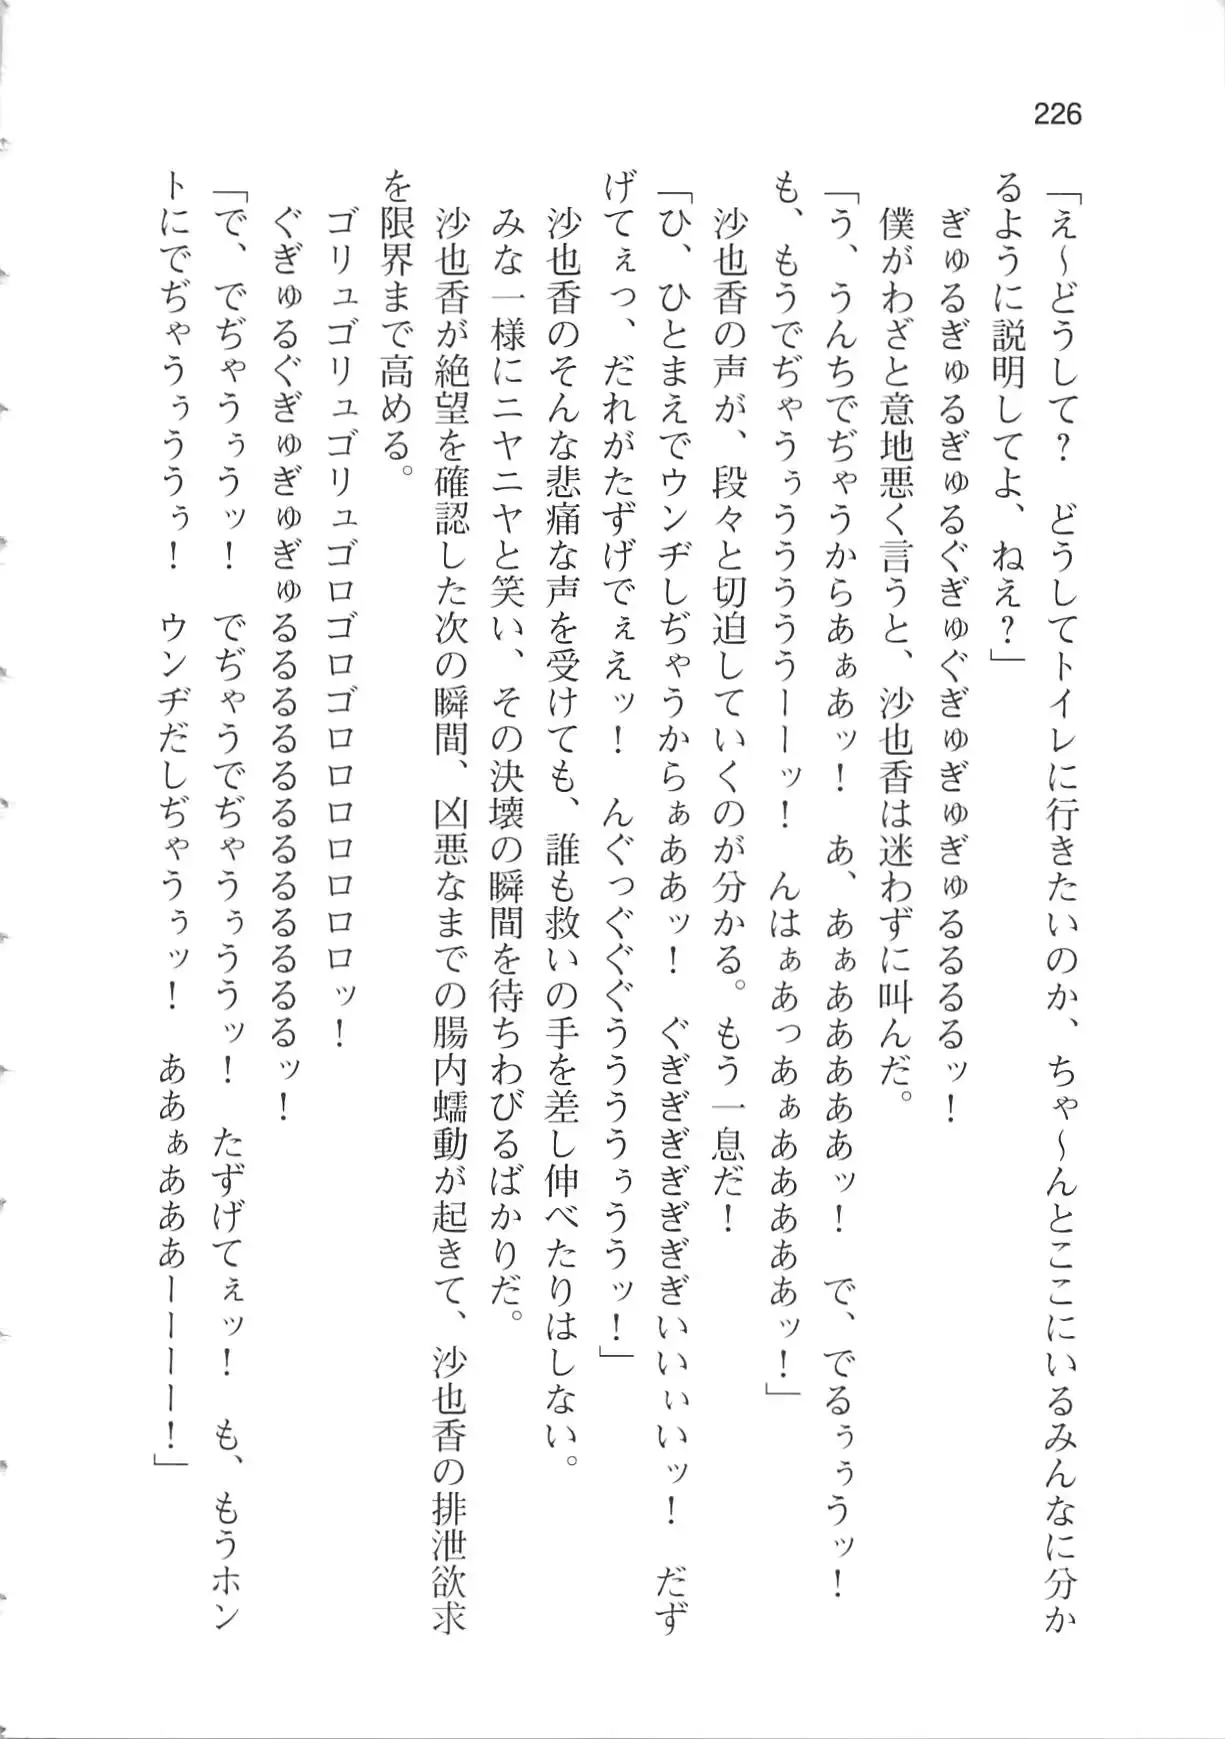 226
「え～どうして？　どうしてトイレに行きたいのか、ちゃ～んとここにいるみんなに分か
るように説明してよ、ねえ？」
　ぎゅるぎゅるぎゅるぐぎゅぐぎゅぎゅぎゅるるるるッ！
　僕がわざと意地悪く言うと、沙也香は迷わずに叫んだ。
「う、うんちでぢゃうからあぁあッ！　あ、あぁああああああッ！　で、でるぅぅうッ！
も、もうでぢゃうぅうううううーーッ！　んはぁあっあぁああああああッ！」
　沙也香の声が、段々と切迫していくのが分かる。もう一息だ！
「ひ、ひとまえでウンヂしぢゃうからぁああッ！　ぐぎぎぎぎぎぎぎいいいぃいッ！　だず
げてぇっ、だれがたずげでぇえッ！　んぐっぐぐぐうううぅううッ！」
　沙也香のそんな悲痛な声を受けても、誰も救いの手を差し伸べたりはしない。
　みな一様にニヤニヤと笑い、その決壊の瞬間を待ちわびるばかりだ。
　沙也香が絶望を確認した次の瞬間、凶悪なまでの腸内蠕動が起きて、沙也香の排泄欲求
を限界まで高める。
　ゴリュゴリュゴリュゴロゴロゴロロロロロロロッ！
　ぐぎゅるぐぎゅぎゅぎゅるるるるるるるるるるるるッ！
「で、でぢゃうぅうッ！　でぢゃうでぢゃうぅううッ！　たずげてぇッ！　も、もうホン
トにでぢゃうぅううぅ！　ウンヂだしぢゃうぅッ！　ああぁあああーーーー！」